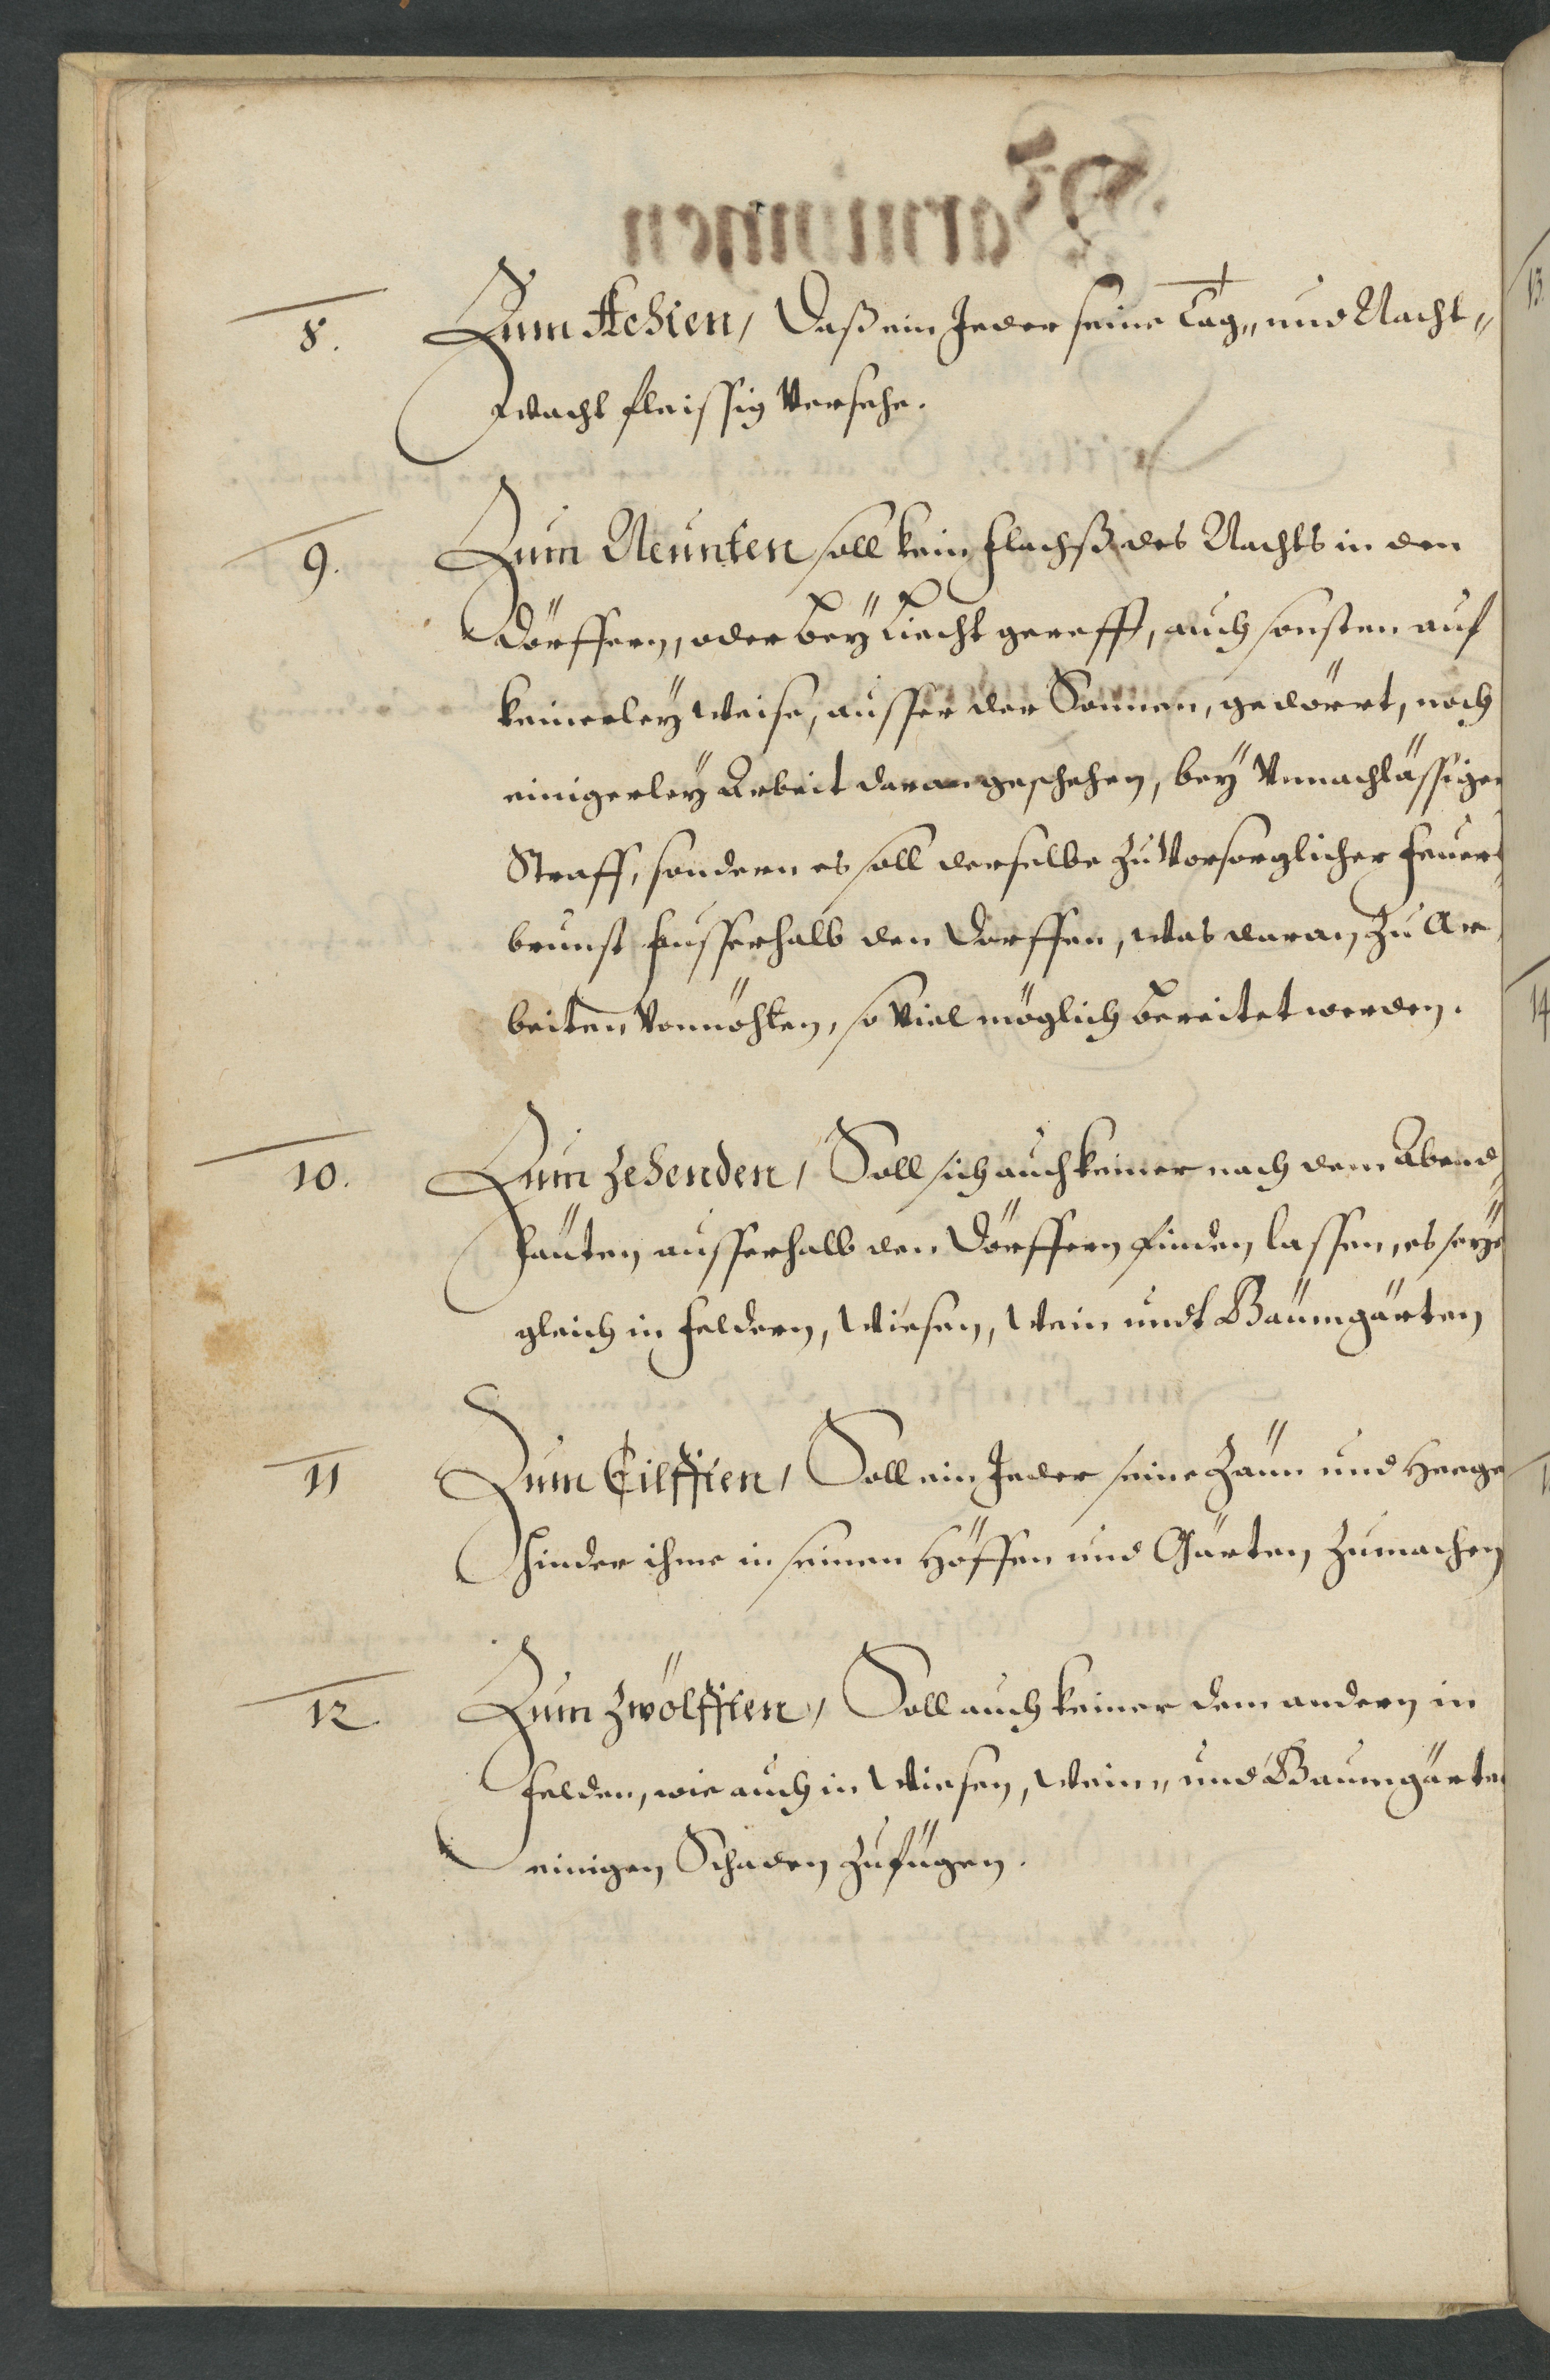 8. Zum Achten, Daß ein Jeder seine Tag„ und Nacht„
wacht fleissig Versehe.
9. Zum Neunten soll kein flachß des Nachts in den
Dörffern, oder bey Liecht gerefft, auch sonsten auf
keinerley Weise, ausser der Sonnen, gedörrt, noch
einigerley Arbeit daran geschehen, bey Vnnachlässiger
Straff, sondern es soll derselbe zu Vorsorglicher feuers
brunst ausserhalb den Dorffen, was daran zu Ar„
beiten Vonnöhten, so Viel möglich bereitet werden.
10. Zum zehenden, Soll sich auch keiner nach dem Abend„
läuten ausserhalb den Dörffern finden lassen, es seye
gleich in feldern, Wiesen, Wein undt Baumgärten
11 Zum Eilfften, Soll ein Jeder seine Zäun und Heege
hinder ihme in seinen Höffen und Gärten zumachen
12 Zum zwölfften, Soll auch keiner dem andern in
felden, wie auch in Wiesen, Wein„ und Baumgärten
einigen Schaden zufügen.
13.
14